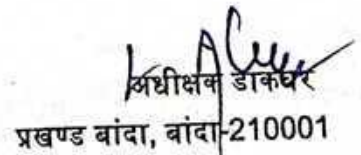 अधीक्षक डाकघर
प्रखण्ड बांदा, बांदा-210001